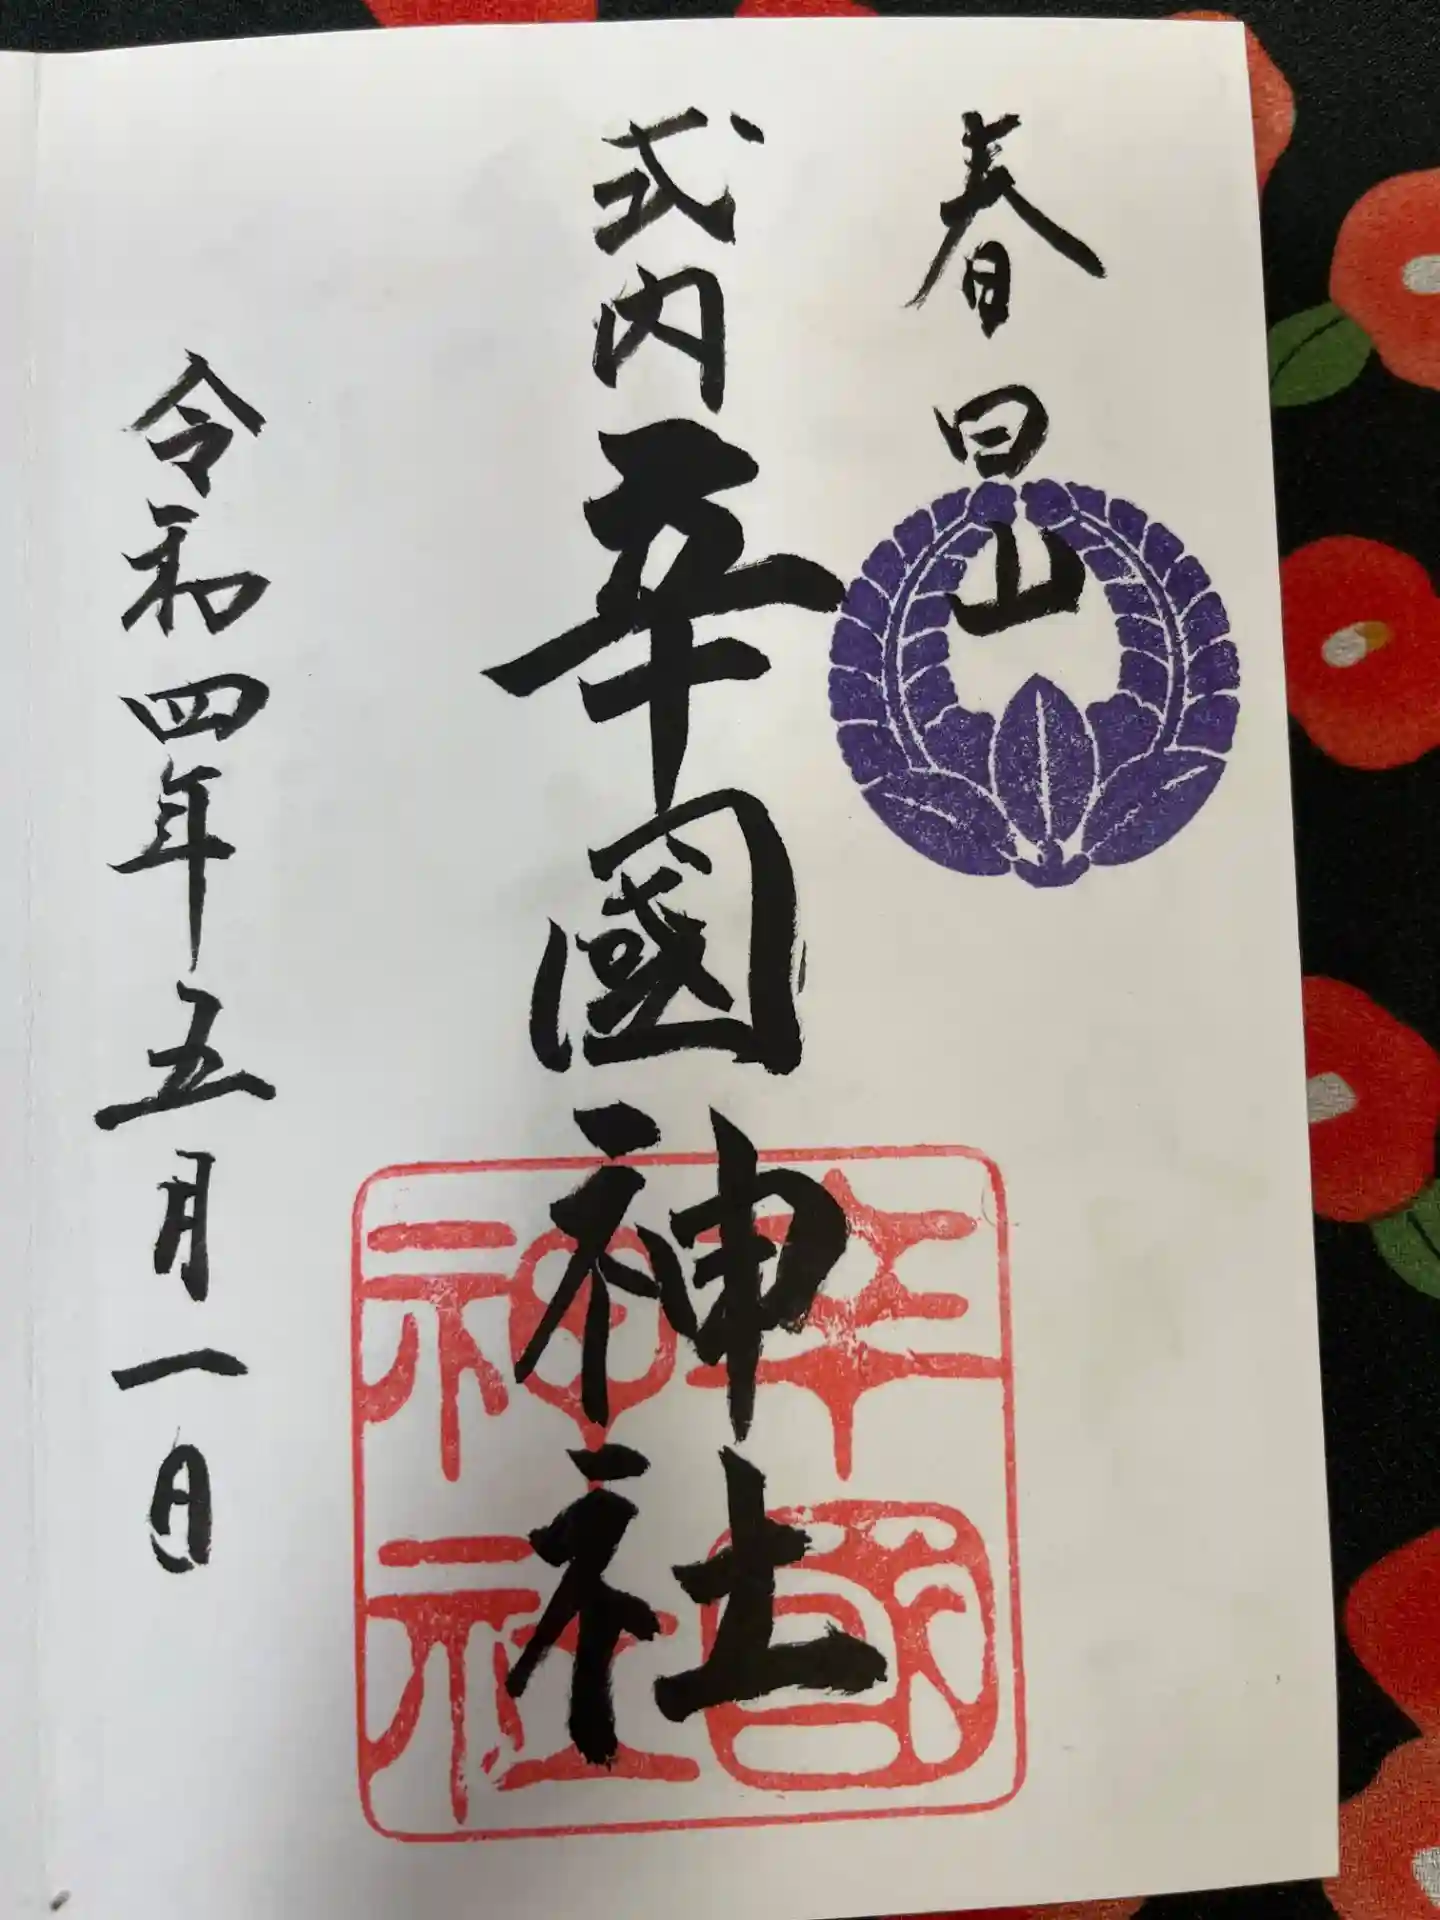 春日山
式内辛國神社
令和四年五月一日
辛國神社